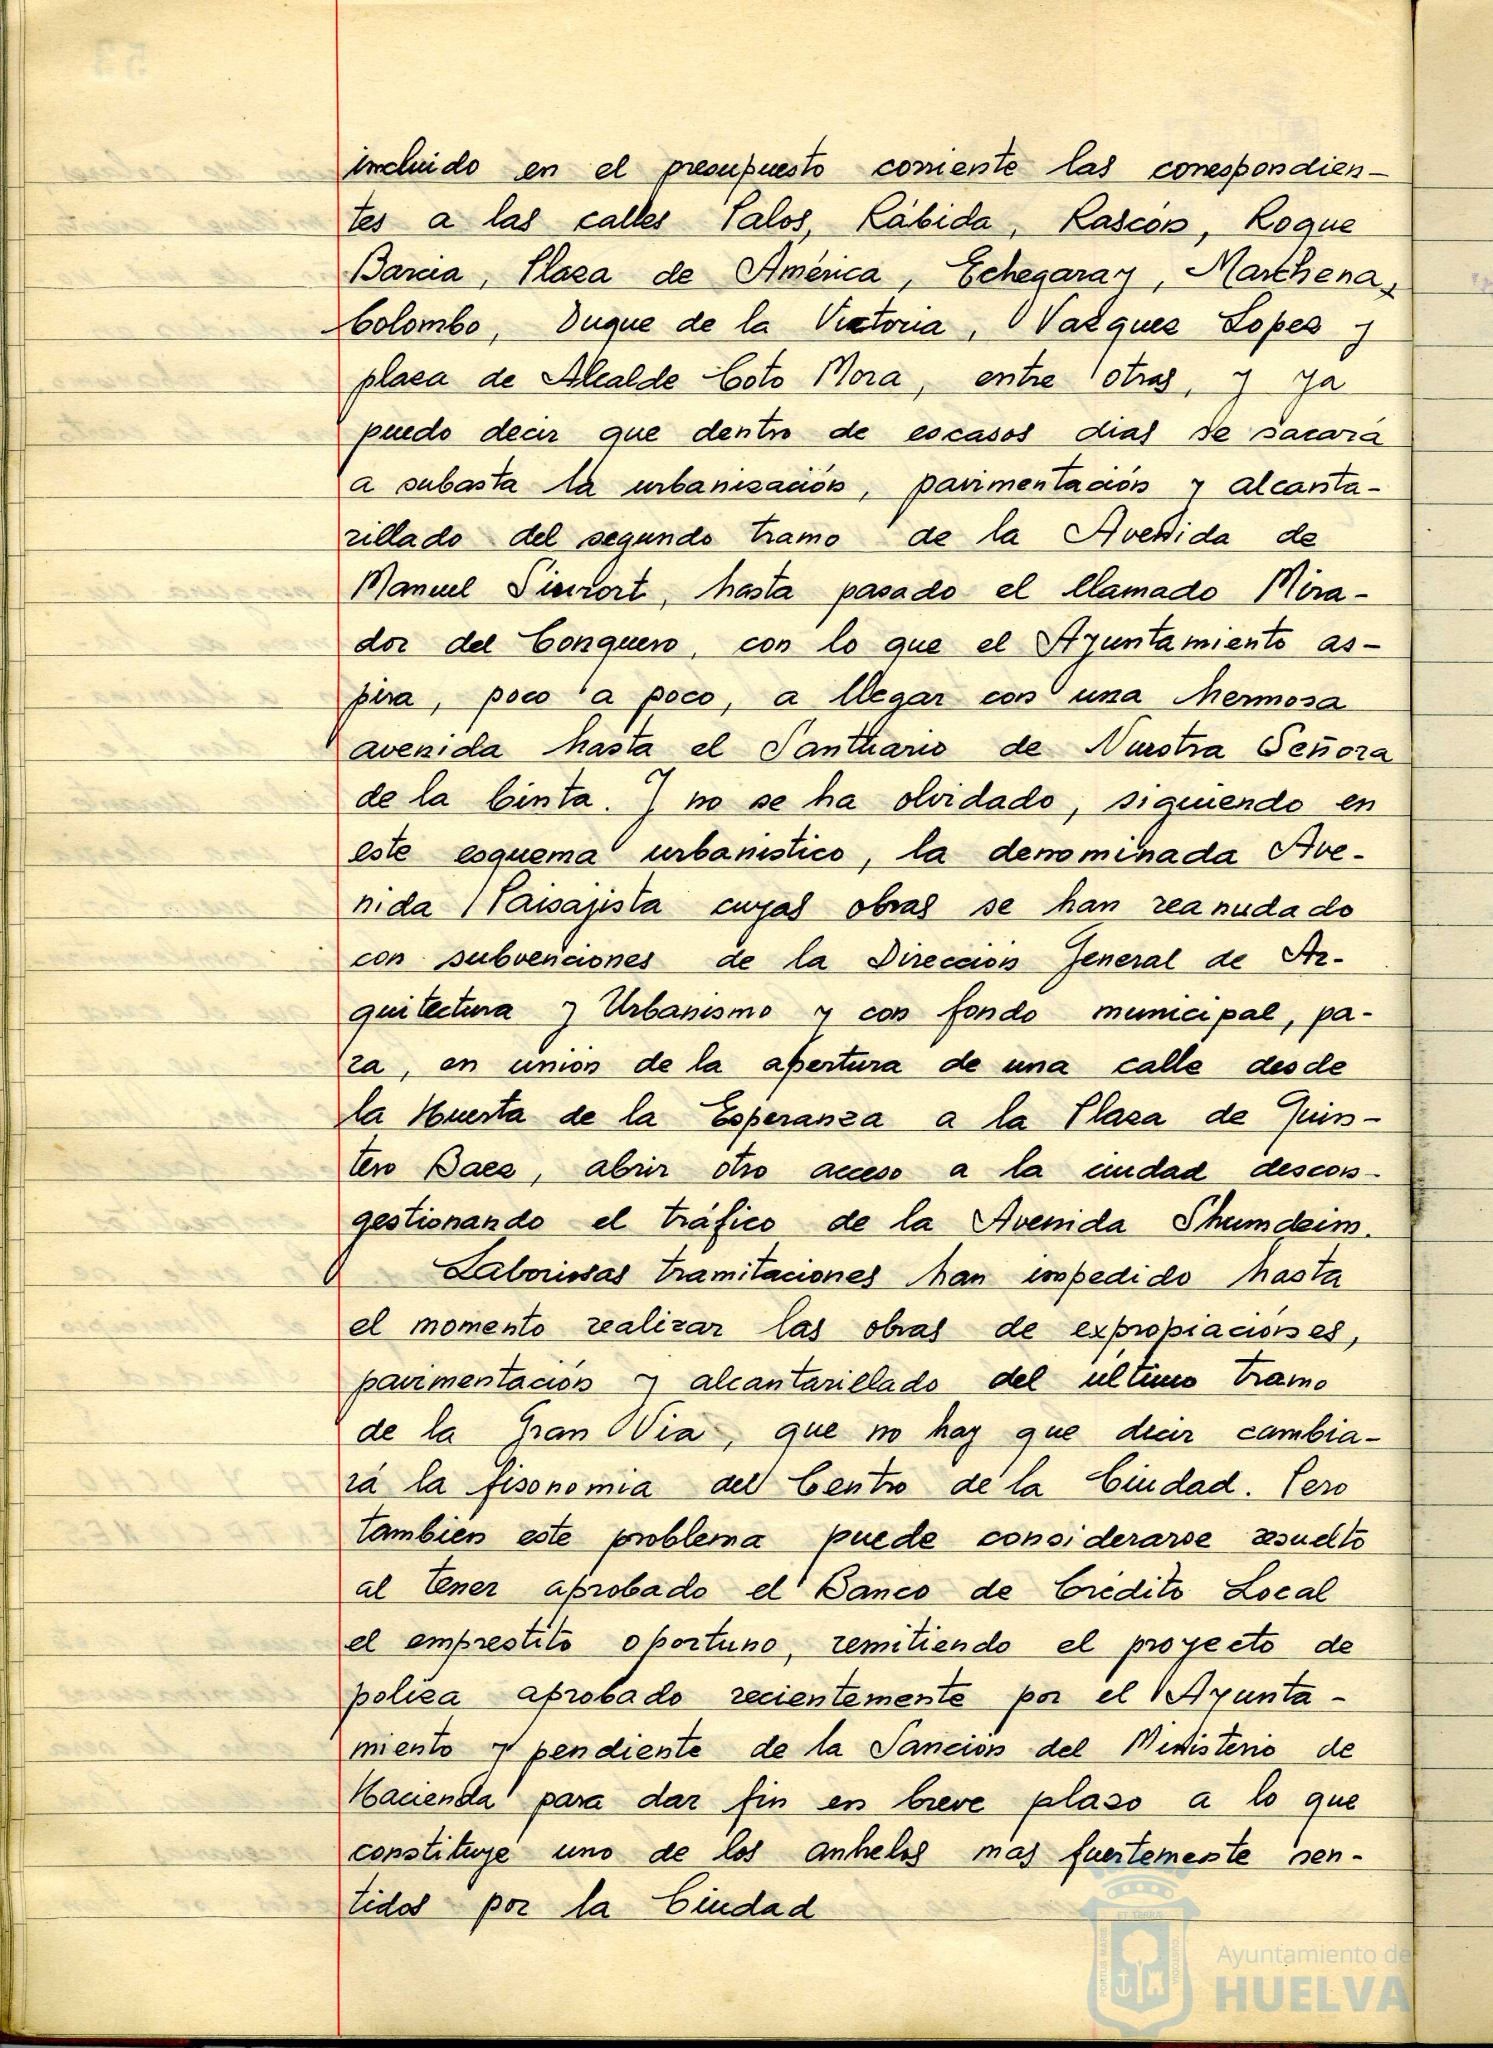 incluido en el presupuesto corriente las correspondien-
tes a las calles Palos, Rábida, Rascón, Roque
Barcia, Plaza de América, Echegaray, Marchena,
Colombo, Duque de la Victoria, Vazquez Lopez y
plaza de Alcalde Coto Mora, entre otras, y ya
puedo decir que dentro de escasos dias se sacará
a subasta la urbanización, pavimentación y alcanta-
rillado del segundo tramo de la Avenida de
Manuel Siurort, hasta pasado el llamado Mira-
dor del Conquero, con lo que el Ayuntamiento as-
pira, poco a poco, a llegar con una hermosa
avenida hasta el Santuario de Nuestra Señora
de la Cinta. Y no se ha olvidado, siguiendo en
este esquema urbanistico, la denominada Ave-
nida Paisajista cuyas obras se han reanudado
con subvenciones de la Dirección General de Ar-
quitectura y Urbanismo y con fondo municipal, pa-
ra, en unión de la apertura de una calle desde
la Huerta de la Esperanza a la Plaza de Quin-
tero Baez, abrir otro acceso a la ciudad descon-
gestionando el tráfico de la Avenida Shumdeim.
Laboriosas tramitaciones han impedido hasta
el momento realizar las obras de expropiaciónes,
pavimentación y alcantarillado del último tramo
de la Gran Via, que no hay que decir cambia-
rá la fisonomia del Centro de la Ciudad. Pero
tambien este problema puede considerarse resuelto
al tener aprobado el Banco de Crédito Local
el emprestito oportuno, remitiendo el proyecto de
poliza aprobado recientemente por el Ayunta-
miento y pendiente de la Sanción del Ministerio de
Hacienda para dar fin en breve plazo a lo que
constituye uno de los anhelos mas fuertemente sen-
tidos por la Ciudad
PORTUS MARIS ET TERRAE CUSTODIA
Ayuntamiento de
HUELVA